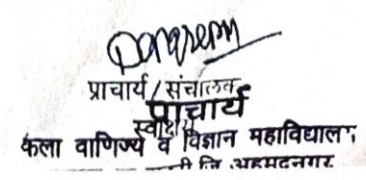 प्राचार्य/संचालक
प्राचार्य
स्वाक्षरी
कला वाणिज्य व विज्ञान महाविद्यालय,
जि. अहमदनगर